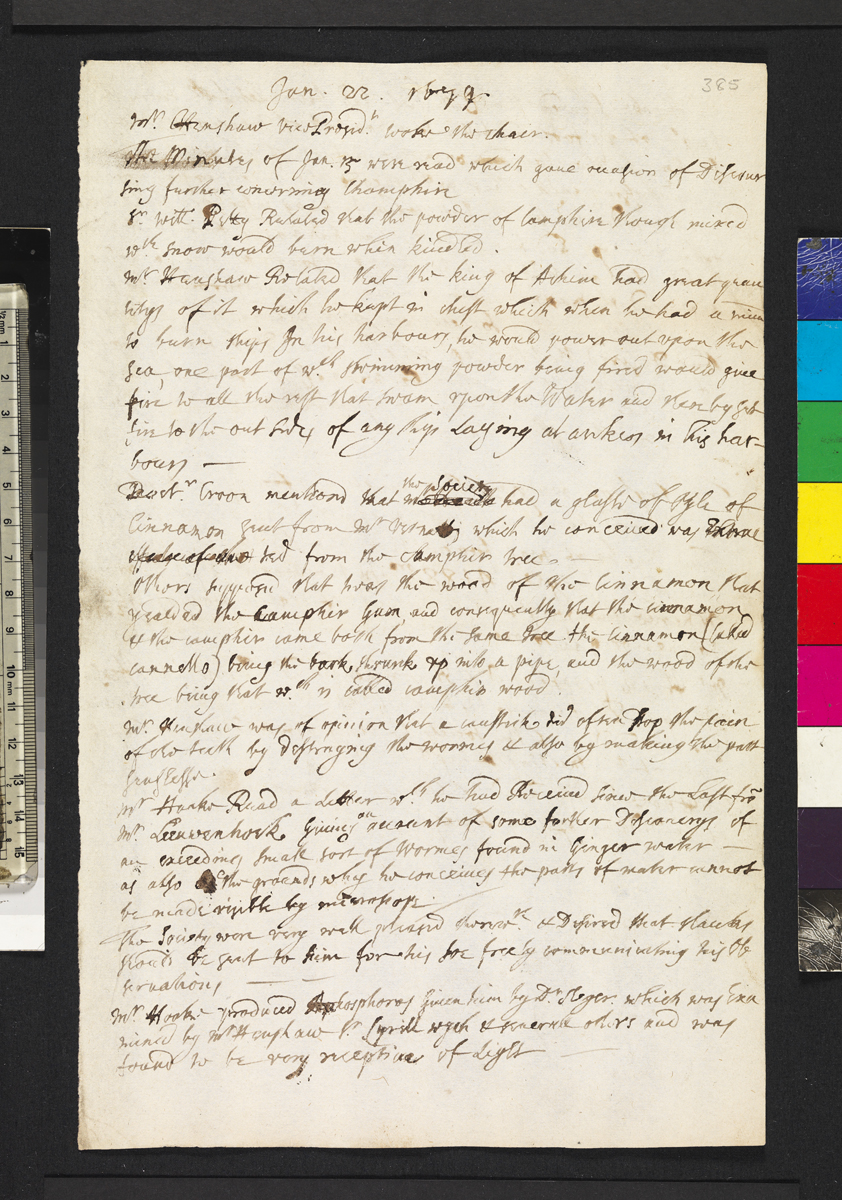 385
Jan. 22. 1679
Mr. Henshaw vice Presidt. tooke the chair.
The Minutes of Jan. 15 were read which gave occasion of Discour
sing further concerning Champhire
Sr. Will. Petty Related that the powder of Camphire though mixed
wth snow would burn when kindled.
Mr. Henshaw Related that the king of Achine had great quan
titys of it which he kept in chests which when he had a mind
to burn ships In his harbours, he would power out upon the
Sea, one part of wch swimming powder being fired would give
fire to all the rest that swam upon the Water and thereby set
fire to the out sides of any ships Laying at ankor in this har-
bours —
Doctr. Croon mentiond that the Society had a glasse of Oyle of
Cinnamon sent from Mr which he conceived was
ted from the camphir tree. —
Others supposed that twas the wood of the Cinnamon that
yealded the Camphir Gum, and consequently that the cinnamon
& the camphir came both from the same tree the cinnamon (called
cannella) being the bark shrunk up into a pipe, and the wood of the
tree being that wch is called camphir wood.
Mr. Henshaw was of opinion that a caustick did often stop the pain
of old teeth by Destroying the wormes & also by making the part
senslesse.
Mr Hooke Read a Letter wch he had Received since the Last fro
Mr. Leeuwenhoek Giving an account of some further Discoverys of
an exceeding small sort of Wormes found in Ginger water —
as also of the grounds why he conceives the parts of water cannot
be made visible by microscope.
The Society were very well pleased therewth. & Desired that thanks
should be sent to him for his soe freely communicating his Ob
servations — —
Mr. Hooke produced Phosphoros Given him by Dr. Sleger. which was Exa
mined by Mr Henshaw Sr. Cyrill wych & severall others and was
found to be very receptive of Light —